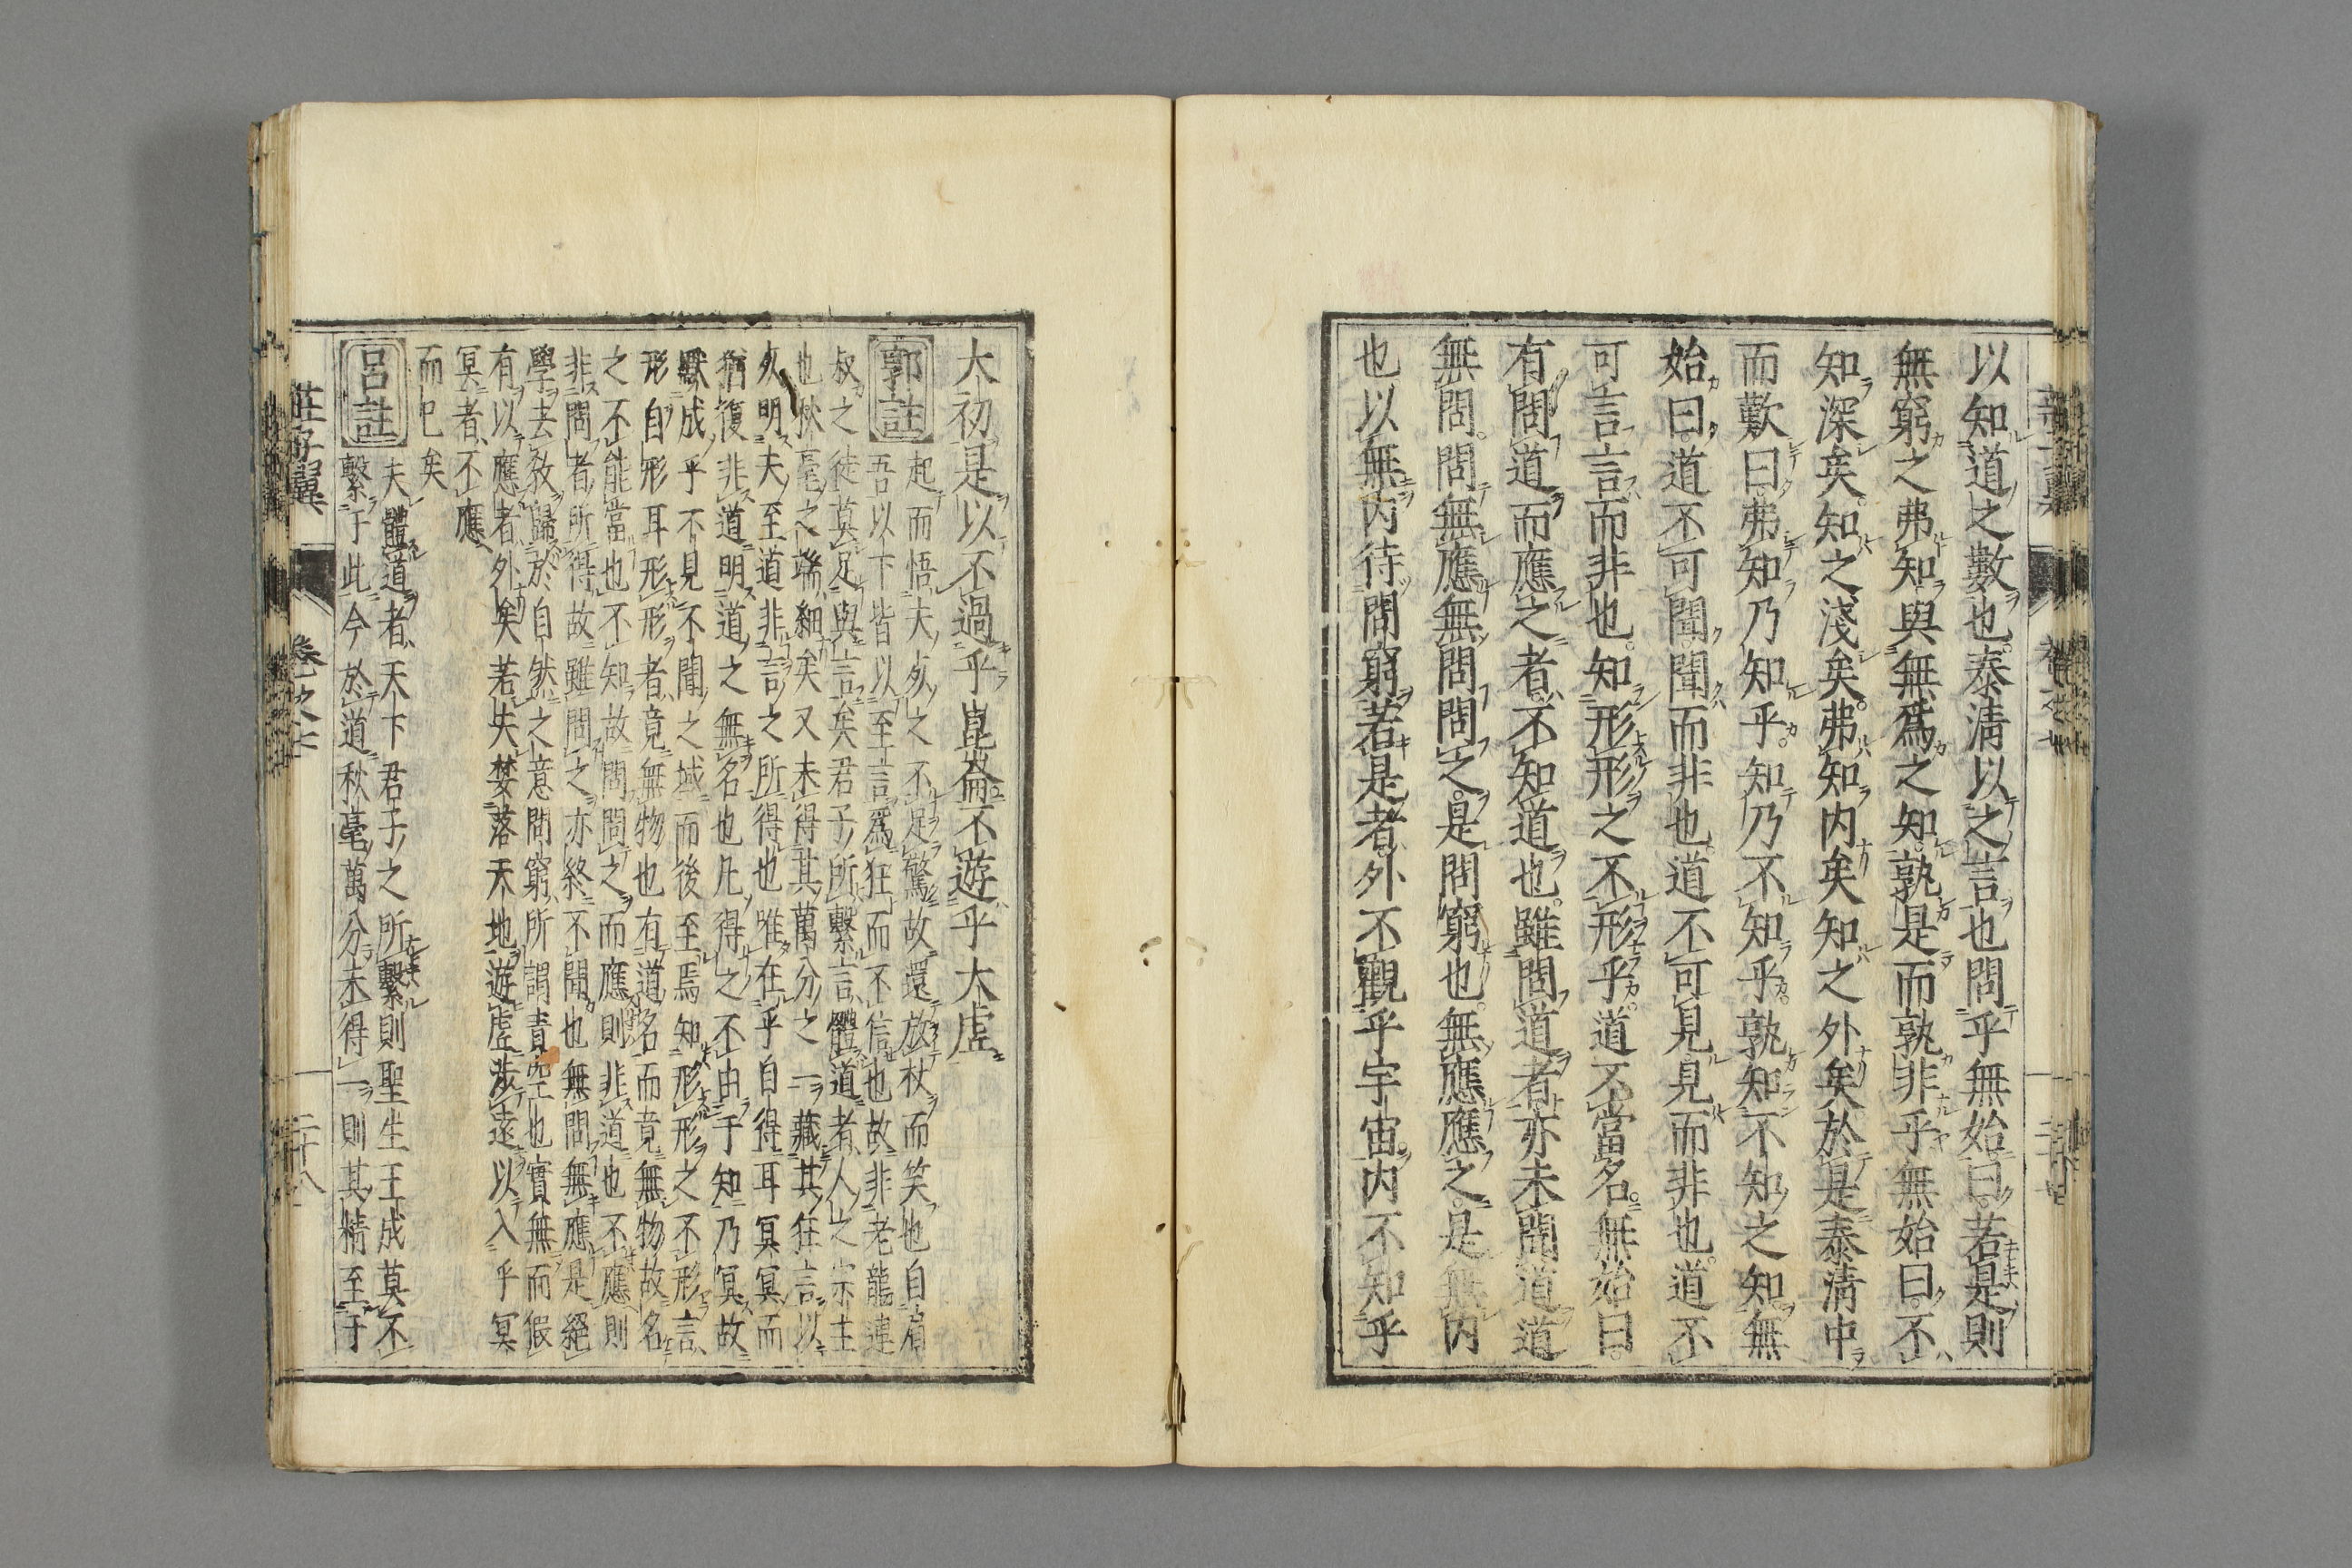 以知道之數也。泰淸以之言也問乎無始曰。若是則
無窮之弗知與無爲之知。孰是而孰非乎無始曰。不
知深矣。知之淺矣。弗知内矣知之外矣於是泰淸中
而歎曰。弗知乃知乎。知乃不知乎。孰知不知之知。無
始曰。道不可聞。聞而非也。道不可見。見而非也。道不
可言言而非也。知形形之不形乎。道不當名。無始曰。
有問道而應之者。不知道也。雖問道者亦未聞道道
無問。問無應無問問之。是問窮也。無應應之。是無内
也以無内待問窮若是者。外不觀乎宇宙。内不知乎
大初是以不過乎崑崙不遊乎大虛
郭註
起而悟夫夘之不足驚故還放杖而笑也自肩
吾以下皆以至言爲狂而不信也故非老龍連
叔之徒莫足與言矣君子所繫言體道者人之宗主
也秋毫之端細矣又未得其萬分之一藏其狂言以
夘明夫至道非言之所得也唯在乎自得耳冥冥而
猶復非道明道之無名也凡得之不由于知乃冥故
默成乎不見不聞之域而後至焉知形形之不形言
形自形耳形形者竟無物也有道名而竟無物故名
之不能當也不知故問問之而應則非道也不應則
非問者所得故雖問之亦終不聞也無問無應是絕
學去敎歸於自然之意問窮所謂責空也實無而假
有以應者外矣若夫婪落天地遊虛涉遠以入乎冥
冥者不應
而已矣
呂註
夫體道者天下君子之所繫則聖生王成莫不
繫于此今於道秋毫萬分未得一則其精至于
莊子翼
卷之七
二十八